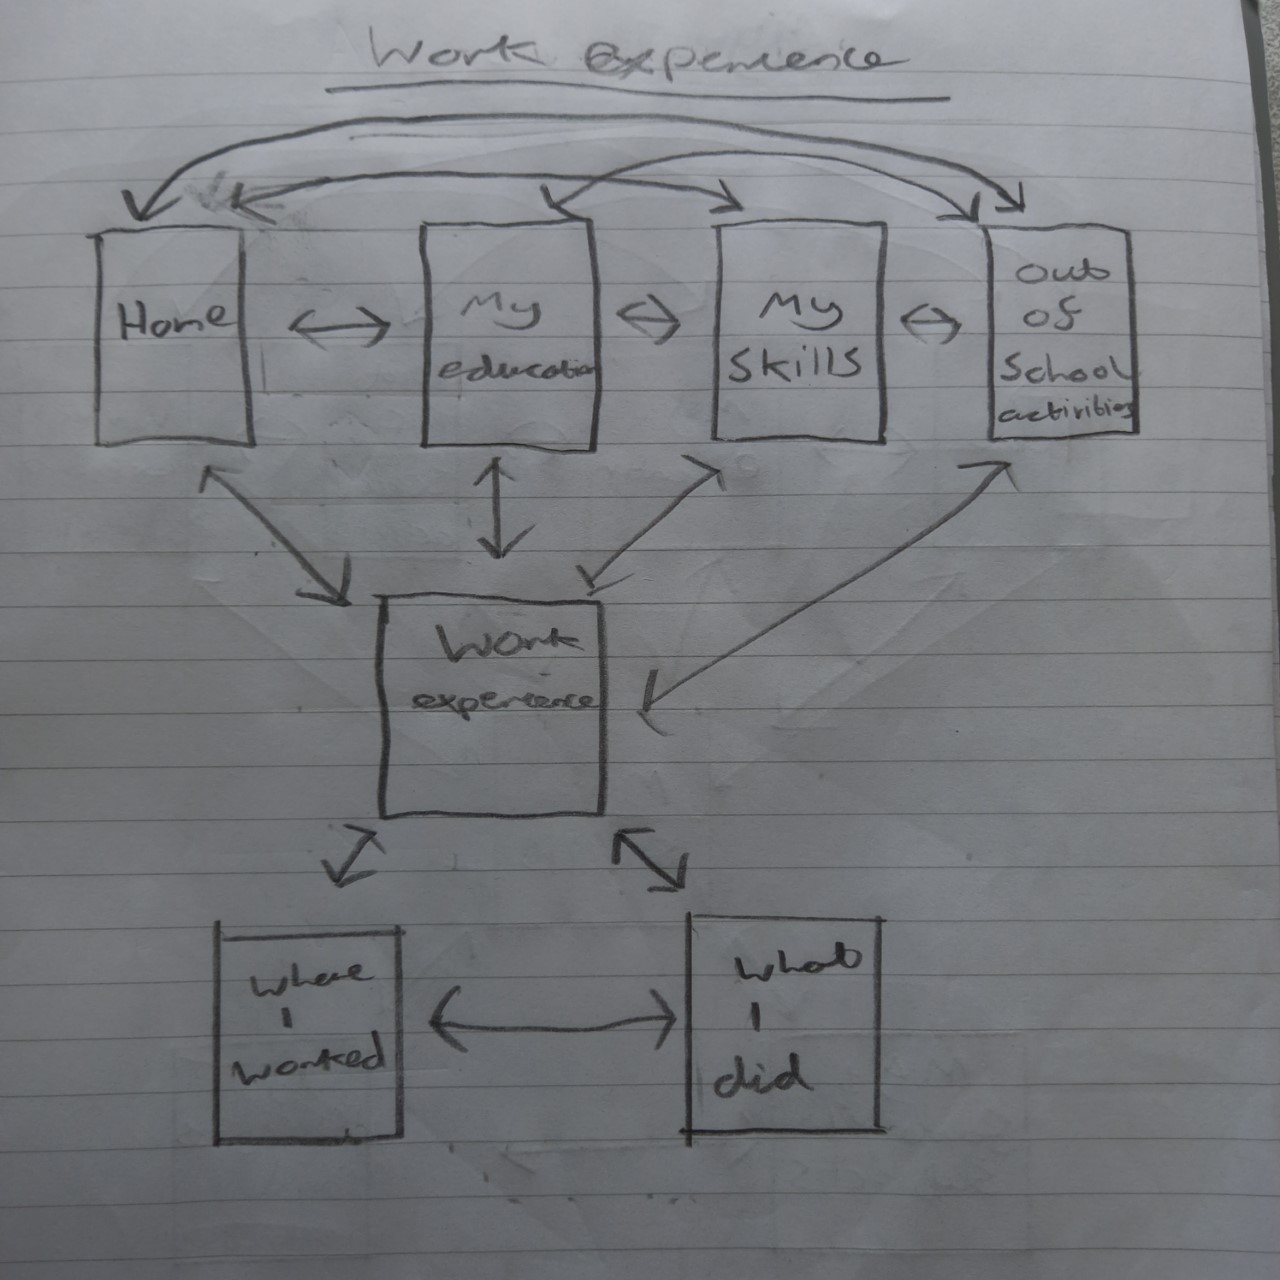 Work experience
Home
My
education
My
Skills
Out
of
School
activities
Work
experience
Where
I
worked
What
I
did